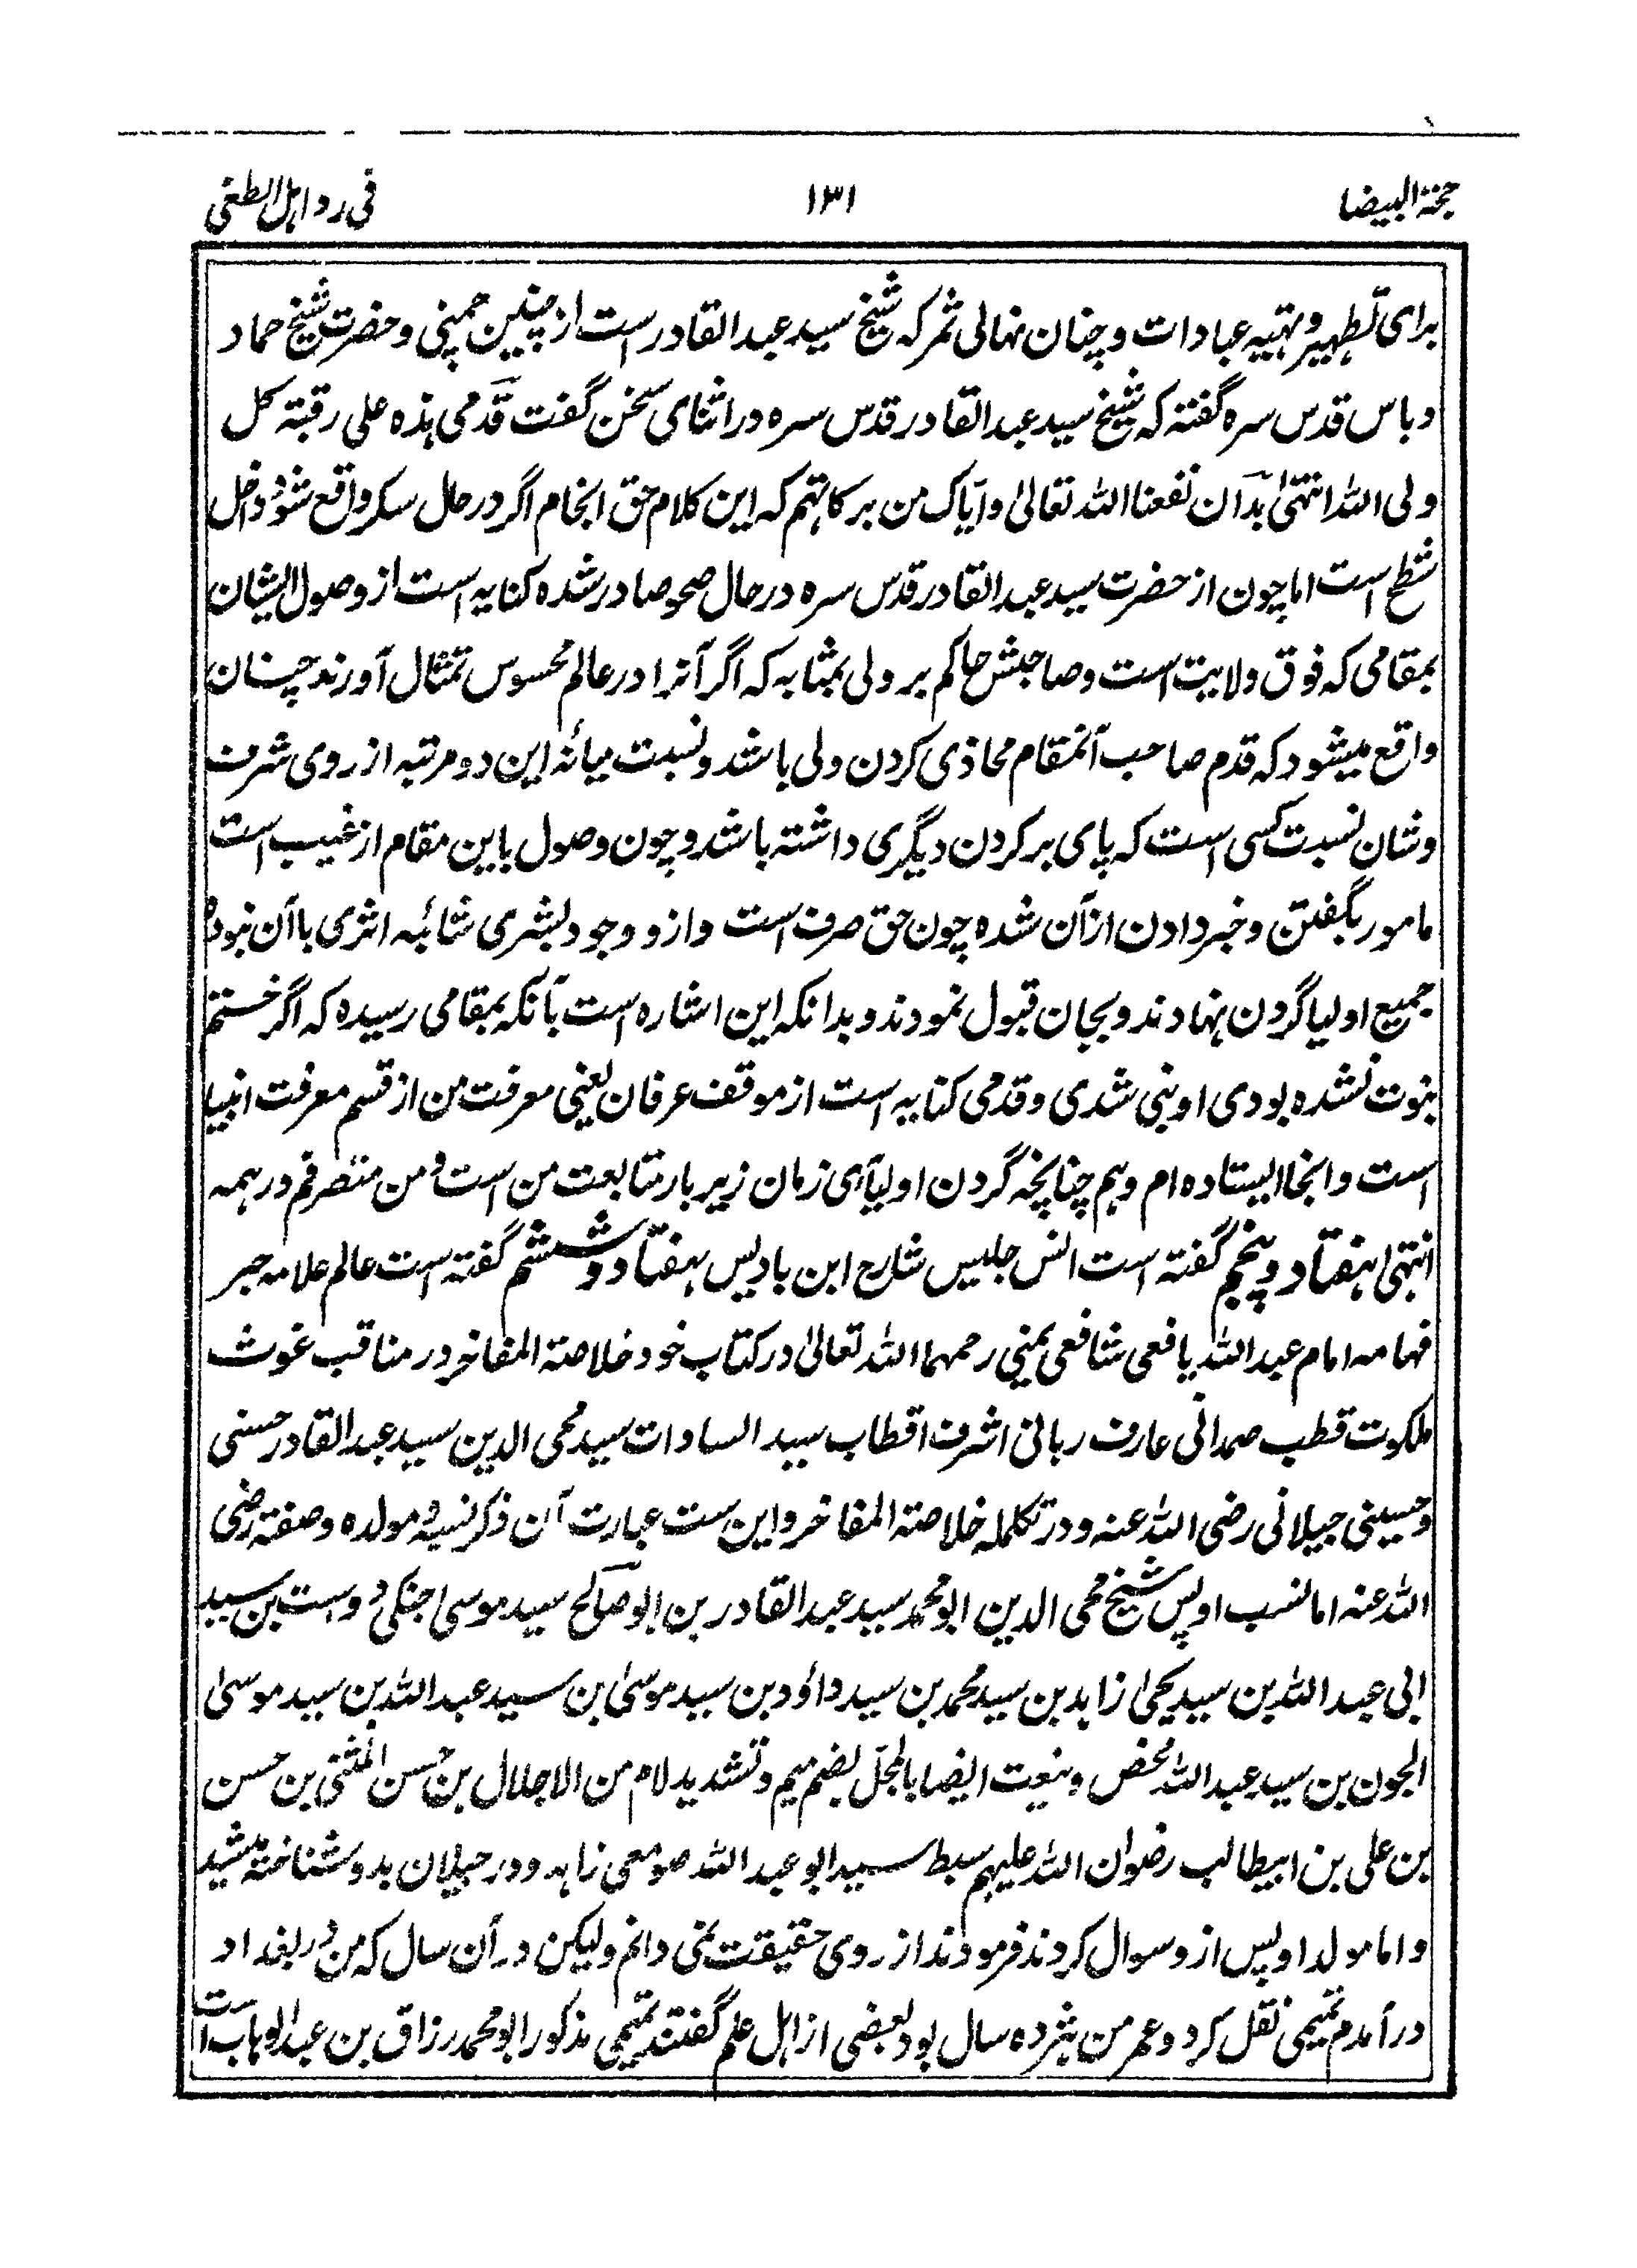 حجة البیضا ۱۳۱ فی رد اہل الطغی
برای تطہیر و تہیہ عبادات و چنان نہالی ثمر کہ شیخ سید عبد القادر است از چنین چمنی و حضرت شیخ حماد
دباس قدس سرہ گفتہ کہ شیخ سید عبد القادر قدس سرہ در اثنای سخن گفت قدمی ہذہ علی رقبة کل
ولی اللہ انتہیٰ بدان نفعنا اللہ تعالیٰ وایاک من برکاتہم کہ این کلام حق انجام اگر در حال سکر واقع شود داخل
شطح است اما چون از حضرت سید عبد القادر قدس سرہ در حال صحو صادر شدہ کنایہ است از وصول ایشان
بمقامی کہ فوق ولایت است و صاحبش حاکم بر ولی بمثابہ کہ اگر آنرا در عالم محسوس تمثال آورند چنان
واقع میشود کہ قدم صاحب آنمقام محاذی گردن ولی باشد و نسبت میانۂ این دو مرتبہ از روی شرف
و شان نسبت کسی است کہ پای بر گردن دیگری داشتہ باشد و چون وصول باین مقام از غیب است
مامور بگفتن و خبر دادن ازآن شدہ چون حق صرف است و ازو وجود بشری شائبہ اثری با آن نبود
جمیع اولیا گردن نہادند و بجان قبول نمودند و بدانکہ این اشارہ است بآنکہ بمقامی رسیدہ کہ اگر ختم
نبوت نشدہ بودی او نبی شدی و قدمی کنایہ است از موقف عرفان یعنی معرفت من از قسم معرفت انبیا
است و اینجا ایستادہ ام و ہم چنانچہ گردن اولیآی زمان زیر بار متابعت من است و من متصرفم در ہمہ
انتہی ہفتاد و پنجم گفتہ است انس جلیس شارح ابن بادیس ہفتاد و ششم گفتہ است عالم علامہ حبر
فہامہ امام عبد اللہ یافعی شافعی یمنی رحمہما اللہ تعالیٰ در کتاب خود خلاصة المفاخر در مناقب غوث
ملکوت قطب صمدانی عارف ربانی اشرف اقطاب سید السادات سید محی الدین سید عبد القادر حسنی
و حسینی جیلانی رضی اللہ عنہ و در تکملہ خلاصة المفاخر و این ست عبارت آن ذکر نسبہ و مولدہ و صفتہ رضی
اللہ عنہ اما نسب او پس شیخ محی الدین ابو محمد سید عبد القادر بن ابو صالح سید موسی جنگی دوست بن سید
ابی عبد اللہ بن سید یحیٰ زاہد بن سید محمد بن سید داؤد بن سید موسیٰ بن سید عبد اللہ بن سید موسیٰ
الجون بن سید عبد اللہ محض و ینعت ایضا بالمجلّ بضم میم و تشدید لام من الاجلال بن حسن المثنی بن حسن
بن علی بن ابیطالب رضوان اللہ علیہم سبط سید ابو عبد اللہ صومعی زاہد و در جیلان بدو شناختہ میشد
و اما مولد او پس ازو سوال کردند فرمودند از روی حقیقت نمی دانم و لیکن در آن سال کہ من در بغداد
در آمدم تمیمی نقل کرد و عمر من ہژدہ سال بود بعضی از اہل علم گفتند تمیمی مذکور ابو محمد رزاق بن عبد الوہاب است